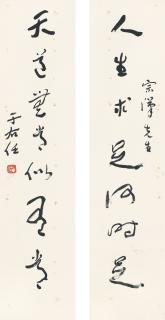 宗 先生
人生求足何時足
天道無常似有常
于右任